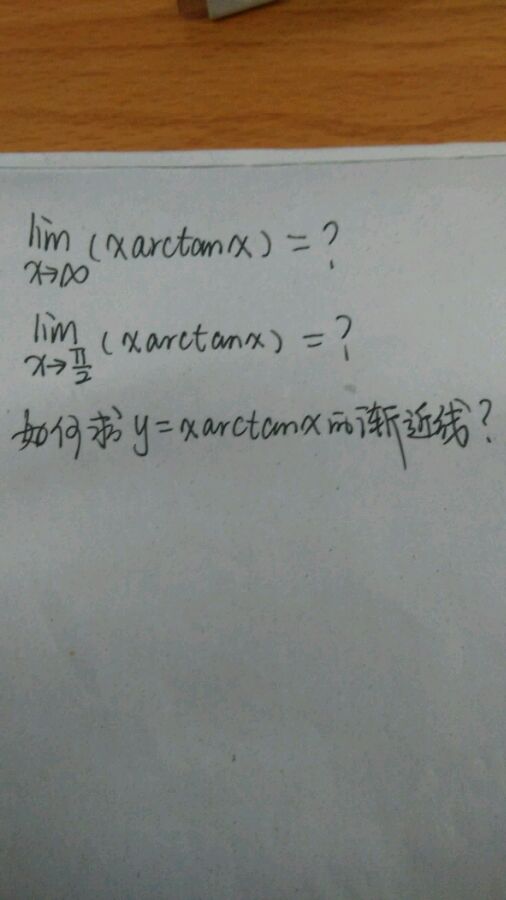 lim x→∞ (xarctanx) = ?
lim x→π/2 (xarctanx) = ?
如何求y=xarctanx的渐近线?